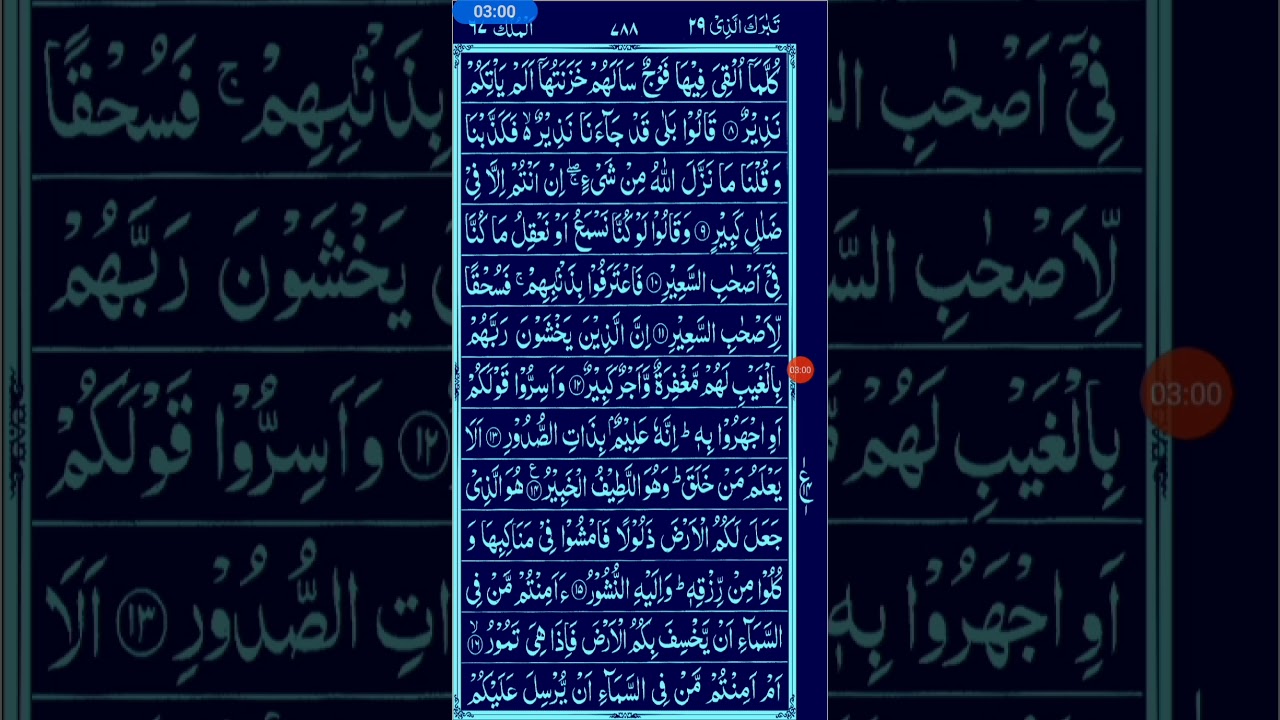 03:00
تَبٰرَكَ الَّذِیْ ٢٩ ٧٨٨ الملك ٦٧
كُلَّمَاۤ اُلْقِیَ فِیْهَا فَوْجٌ سَاَلَهُمْ خَزَنَتُهَاۤ اَلَمْ یَاْتِكُمْ
نَذِیْرٌ ﴿٨﴾ قَالُوْا بَلٰی قَدْ جَآءَنَا نَذِیْرٌ ۙ۬ فَكَذَّبْنَا
وَ قُلْنَا مَا نَزَّلَ اللّٰهُ مِنْ شَیْءٍ ۚۖ اِنْ اَنْتُمْ اِلَّا فِیْ
ضَلٰلٍ كَبِیْرٍ ﴿٩﴾ وَ قَالُوْا لَوْ كُنَّا نَسْمَعُ اَوْ نَعْقِلُ مَا كُنَّا
فِیْۤ اَصْحٰبِ السَّعِیْرِ ﴿١٠﴾ فَاعْتَرَفُوْا بِذَنْۢبِهِمْ ۚ فَسُحْقًا
لِّاَصْحٰبِ السَّعِیْرِ ﴿١١﴾ اِنَّ الَّذِیْنَ یَخْشَوْنَ رَبَّهُمْ
بِالْغَیْبِ لَهُمْ مَّغْفِرَةٌ وَّ اَجْرٌ كَبِیْرٌ ﴿١٢﴾ وَ اَسِرُّوْا قَوْلَكُمْ
03:00
اَوِ اجْهَرُوْا بِهٖ ؕ اِنَّهٗ عَلِیْمٌۢ بِذَاتِ الصُّدُوْرِ ﴿١٣﴾ اَلَا
یَعْلَمُ مَنْ خَلَقَ ؕ وَ هُوَ اللَّطِیْفُ الْخَبِیْرُ ﴿١٤﴾ هُوَ الَّذِیْ
جَعَلَ لَكُمُ الْاَرْضَ ذَلُوْلًا فَامْشُوْا فِیْ مَنَاكِبِهَا وَ
كُلُوْا مِنْ رِّزْقِهٖ ؕ وَ اِلَیْهِ النُّشُوْرُ ﴿١٥﴾ ءَاَمِنْتُمْ مَّنْ فِی
السَّمَآءِ اَنْ یَّخْسِفَ بِكُمُ الْاَرْضَ فَاِذَا هِیَ تَمُوْرُ ﴿١٦﴾ۙ
اَمْ اَمِنْتُمْ مَّنْ فِی السَّمَآءِ اَنْ یُّرْسِلَ عَلَیْكُمْ